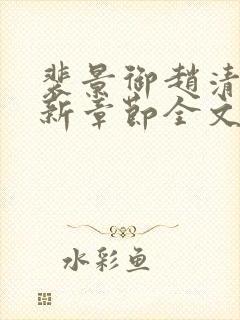 裴景御趙清
新章節全文
水彩鱼